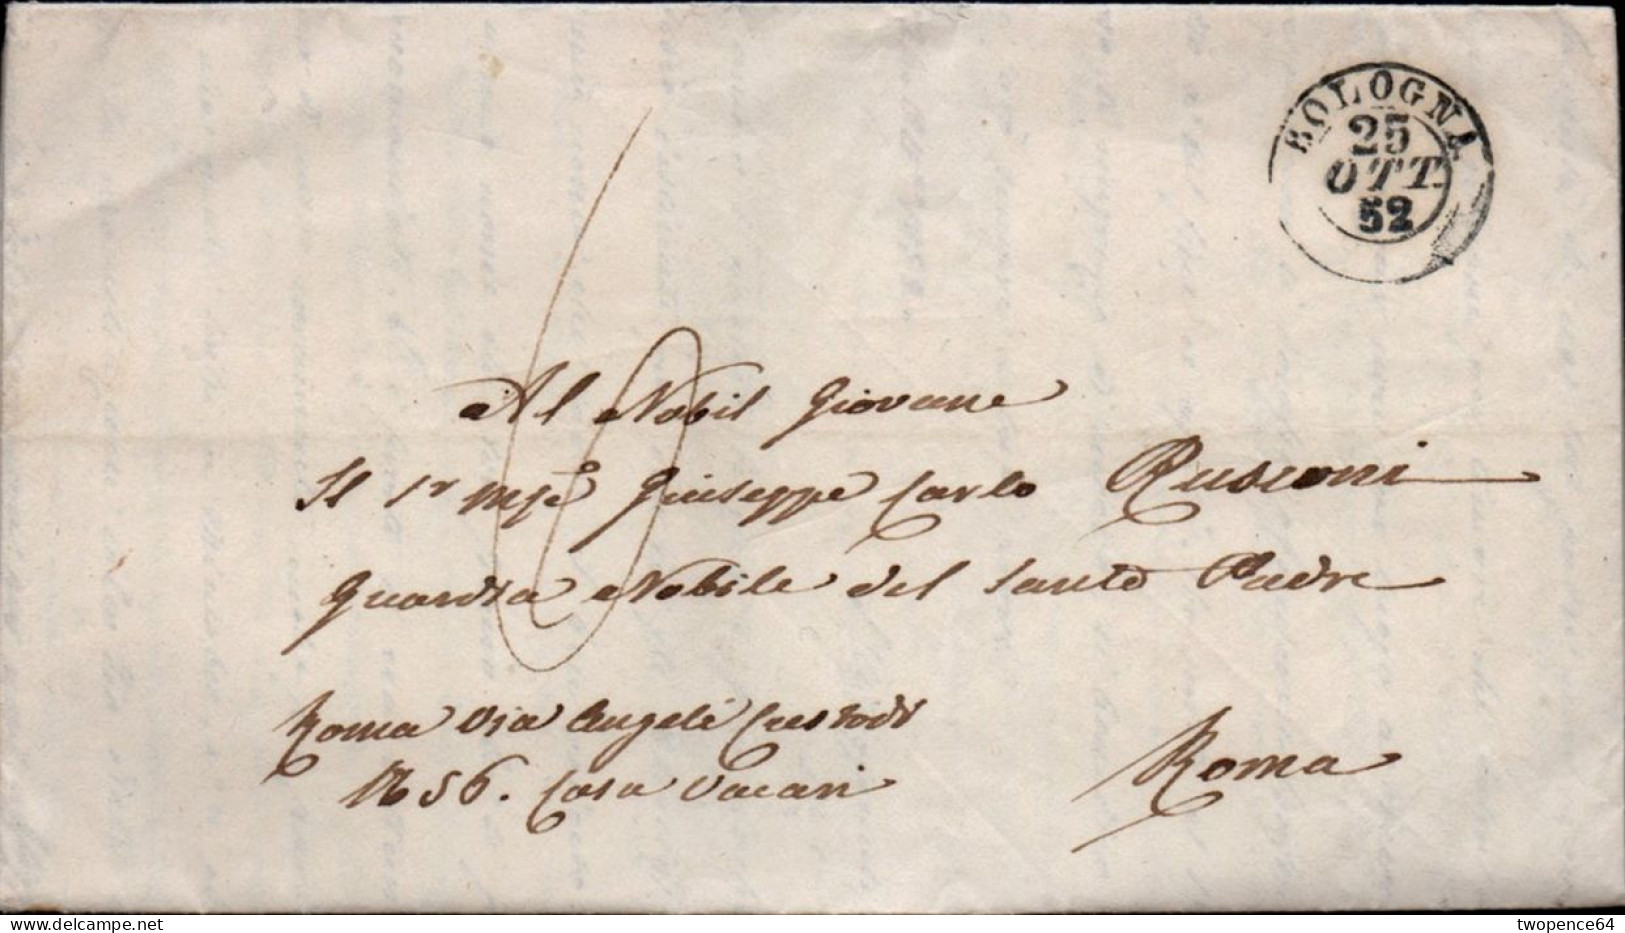 BOLOGNA
25
OTT.
52
6
Al Nobil Giovane
Il Sr Mse Giuseppe Carlo Rusconi
Guardia Nobile del Santo Padre
Roma Via Angeli Custodi
N 56. Casa Vacari
Roma
twopence64